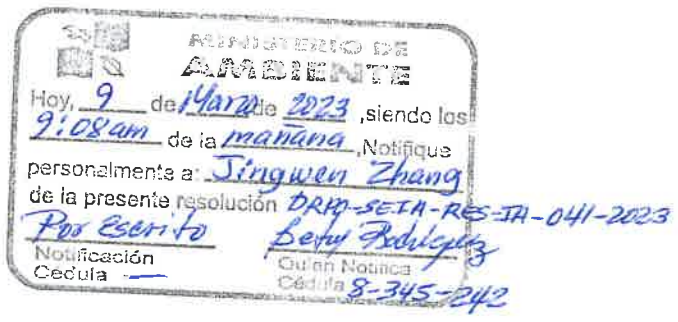 MINISTERIO DE
AMBIENTE
Hoy, 9 de Marzo de 2023, siendo las
9:08am de la mañana, Notifique
personalmente a: Jingwen Zhang
de la presente resolución DRPO-SEIA-RES-IA-041-2023
Por Escrito Betsy Rodríguez
Notificación Quien Notifica
Cédula — Cédula 8-345-242